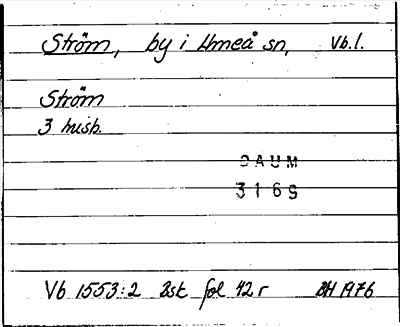 Ström, by i Umeå sn, Vb.l.
Ström
3 mish.
DAUM
3169
Vb 1553:2 Bst fol 42 r BH 1976